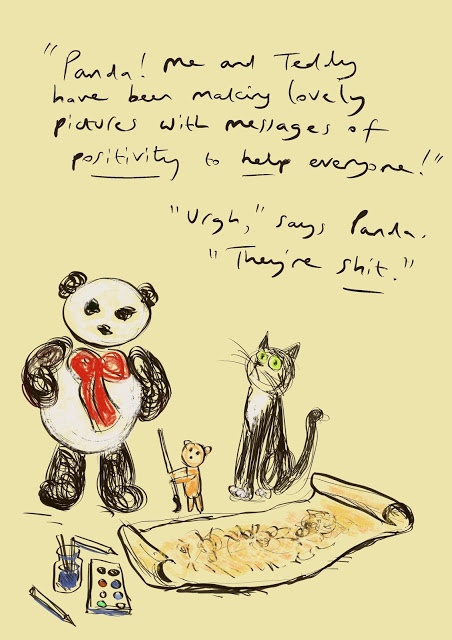 "Panda! Me and Teddy
have been making lovely
pictures with messages of
positivity to help everyone!"
"Urgh," says Panda.
"They're shit."